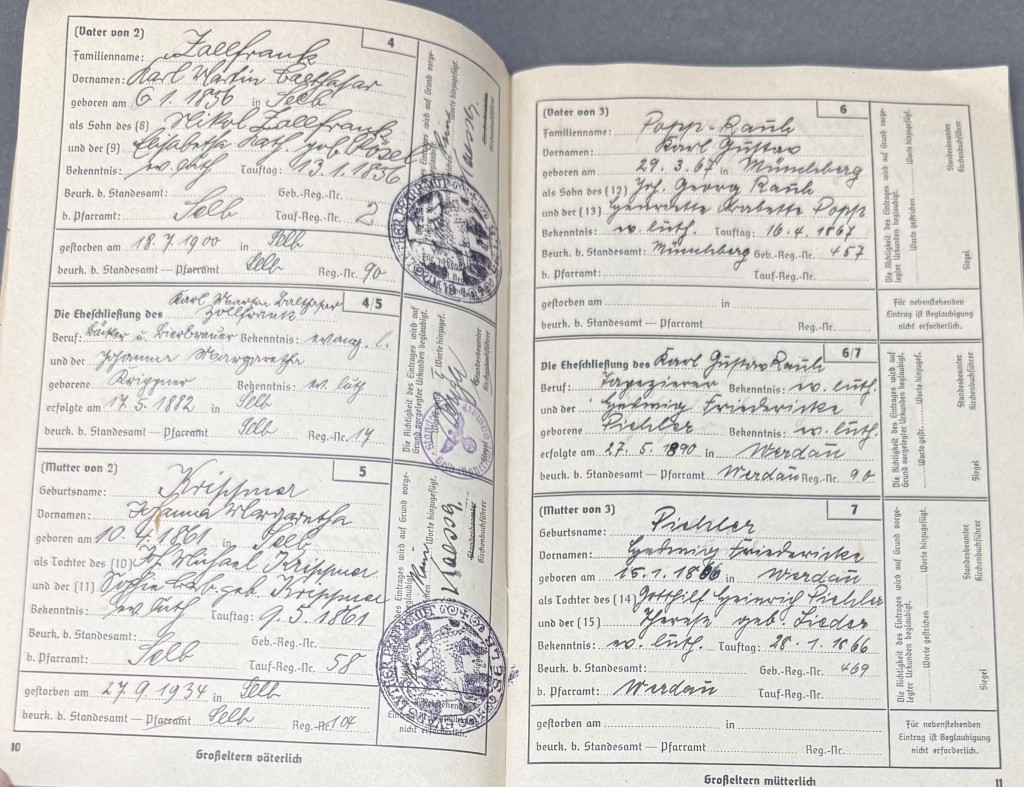 (Vater von 2) 4
Familienname: Zollfrank
Vornamen: Karl Martin Balthasar
geboren am 6.1.1856 in Selb
als Sohn des (8) Nikol Zollfrank
und der (9) Elisabetha Kath. geb. Pösel
Bekenntnis: ev. luth Tauftag: 13.1.1856
Beurk. b. Standesamt: Geb.-Reg.-Nr.
b. Pfarramt: Selb Tauf-Reg.-Nr. 2
gestorben am 18.7.1900 in Selb
beurk. b. Standesamt — Pfarramt Selb Reg.-Nr. 90
Karl Martin Balthasar 4/5
Die Eheschließung des Zollfrank
Beruf: Bäcker u. Bierbrauer Bekenntnis: evang. l.
und der Johanna Margaretha
geborene Krippner Bekenntnis: ev. luth
erfolgte am 17.5.1882 in Selb
beurk. b. Standesamt — Pfarramt Selb Reg.-Nr. 17
(Mutter von 2) 5
Geburtsname: Krippner
Vornamen: Johanna Margaretha
geboren am 10.4.1861 in Selb
als Tochter des (10) Joh. Michael Krippner
und der (11) Sophie Barb. geb. Krippner
Bekenntnis: ev. luth Tauftag: 9.5.1861
Beurk. b. Standesamt: Geb.-Reg.-Nr.
b. Pfarramt: Selb Tauf-Reg.-Nr. 58
gestorben am 27.9.1934 in Selb
beurk. b. Standesamt — Pfarramt Selb Reg.-Nr. 104
10
Großeltern väterlich
(Vater von 3) 6
Familienname: Popp-Rauh
Vornamen: Karl Gustav
geboren am 29.3.67 in Münchberg
als Sohn des (12) Joh. Georg Rauh
und der (13) Henriette Babette Popp
Bekenntnis: ev. luth. Tauftag: 16.4.1867
Beurk. b. Standesamt: Münchberg Geb.-Reg.-Nr. 457
b. Pfarramt: Tauf-Reg.-Nr.
gestorben am in
beurk. b. Standesamt — Pfarramt Reg.-Nr.
Für nebenstehenden
Eintrag ist Beglaubigung
nicht erforderlich.
6/7
Die Eheschließung des Karl Gustav Rauh
Beruf: Tapezierer Bekenntnis: ev. luth.
und der Hedwig Friedericke
geborene Pichler Bekenntnis: ev. luth.
erfolgte am 27.5.1890 in Werdau
beurk. b. Standesamt — Pfarramt Werdau Reg.-Nr. 90
(Mutter von 3) 7
Geburtsname: Pichler
Vornamen: Hedwig Friedericke
geboren am 15.1.1866 in Werdau
als Tochter des (14) Gotthilf Heinrich Pichler
und der (15) Therese geb. Lieder
Bekenntnis: ev. luth. Tauftag: 28.1.1866
Beurk. b. Standesamt: Geb.-Reg.-Nr. 469
b. Pfarramt: Werdau Tauf-Reg.-Nr.
gestorben am in
beurk. b. Standesamt — Pfarramt Reg.-Nr.
Für nebenstehenden
Eintrag ist Beglaubigung
nicht erforderlich.
Großeltern mütterlich
11
Die Richtigkeit des Eintrages wird auf Grund vorge-
legter Urkunden beglaubigt.
Worte gestrichen Worte hinzugefügt.
Standesbeamter
Kirchenbuchführer
Siegel